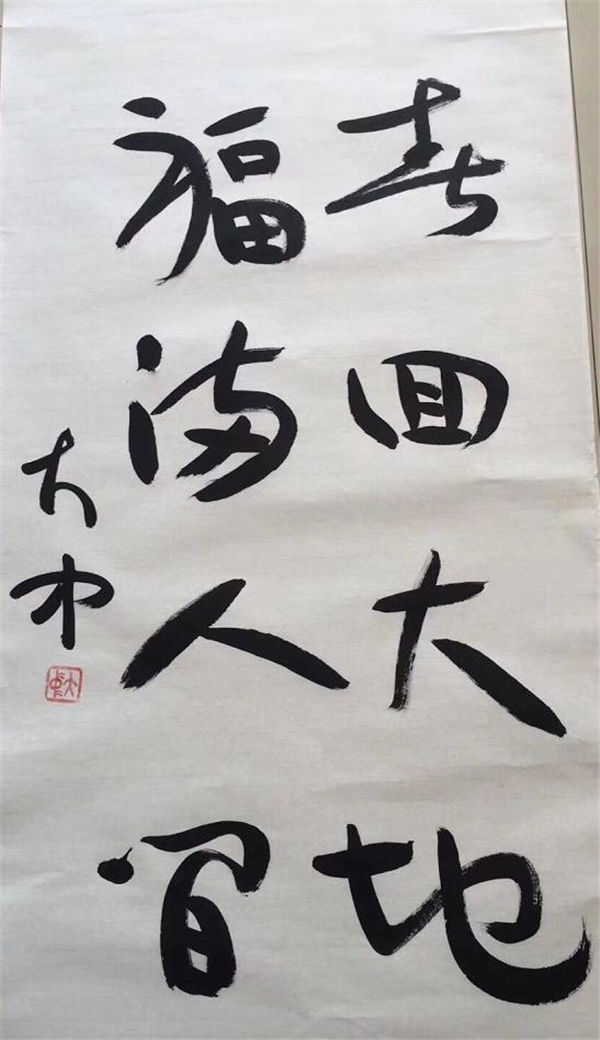 春回大地
福满人间
大中